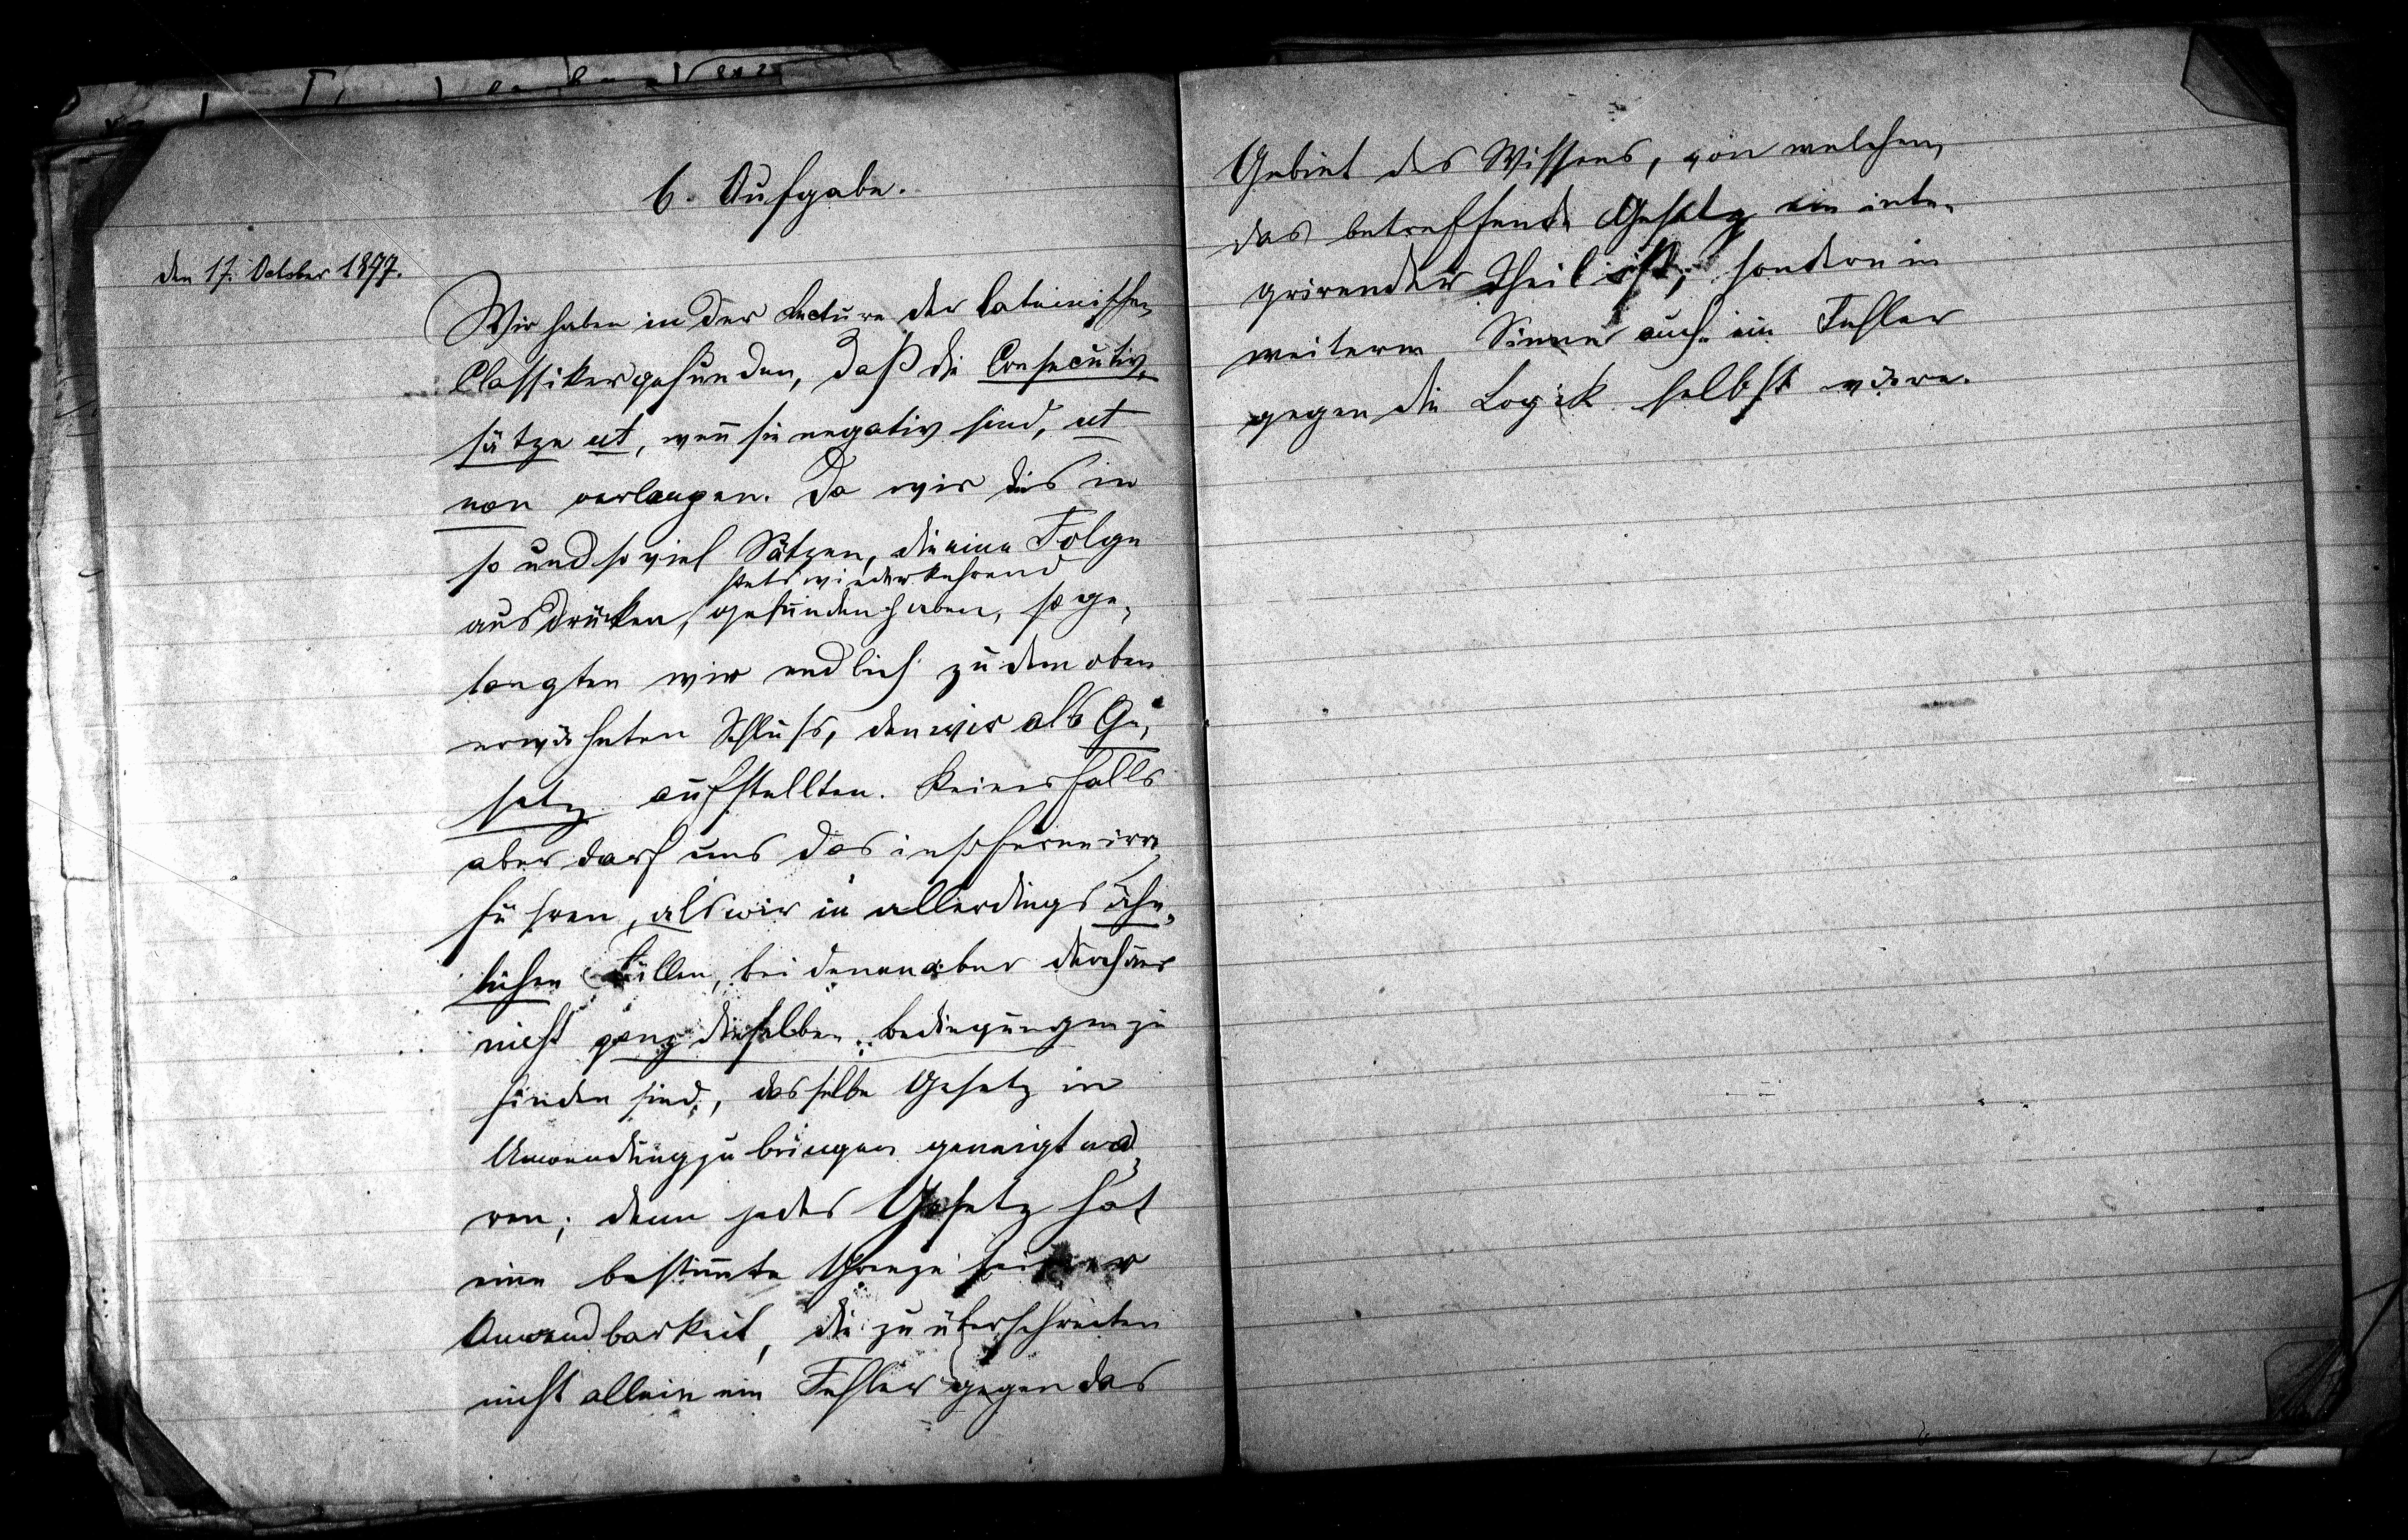 6. Aufgabe.
den 17. October 1877.
Wir haben in der Lecture der lateinischen
Classiker gefunden, daß die Consecutiv-
sätze ut, wen̄ sie negativ sind, ut
non verlangen. Da wir dies in
so und so viel Sätzen, die eine Folge
stets wiederkehrend
ausdrücken, gefunden haben, so ge-
langten wir endlich zu dem oben
erwähnten Schluss, den wir als Ge-
setz aufstellten. Keinesfalls
aber darf uns das insoferne irre
führen, als wir in allerdings ähn-
lichen Fällen, bei denen aber durchaus
nicht ganz dieselben Bedingungen zu
finden sind, dasselbe Gesetz in
Anwendung zu bringen geneigt wä-
ren; denn jedes Gesetz hat
eine bestim̄te Grenze seiner
Anwendbarkeit, die zu überschreiten
nicht allein ein Fehler gegen das
Gebiet des Wissens, von welchem
das betreffende Gesetz ein inte-
grirender Theil ist, sondern im
weiterem Sinne auch ein Fehler
gegen die Logik selbst wäre.